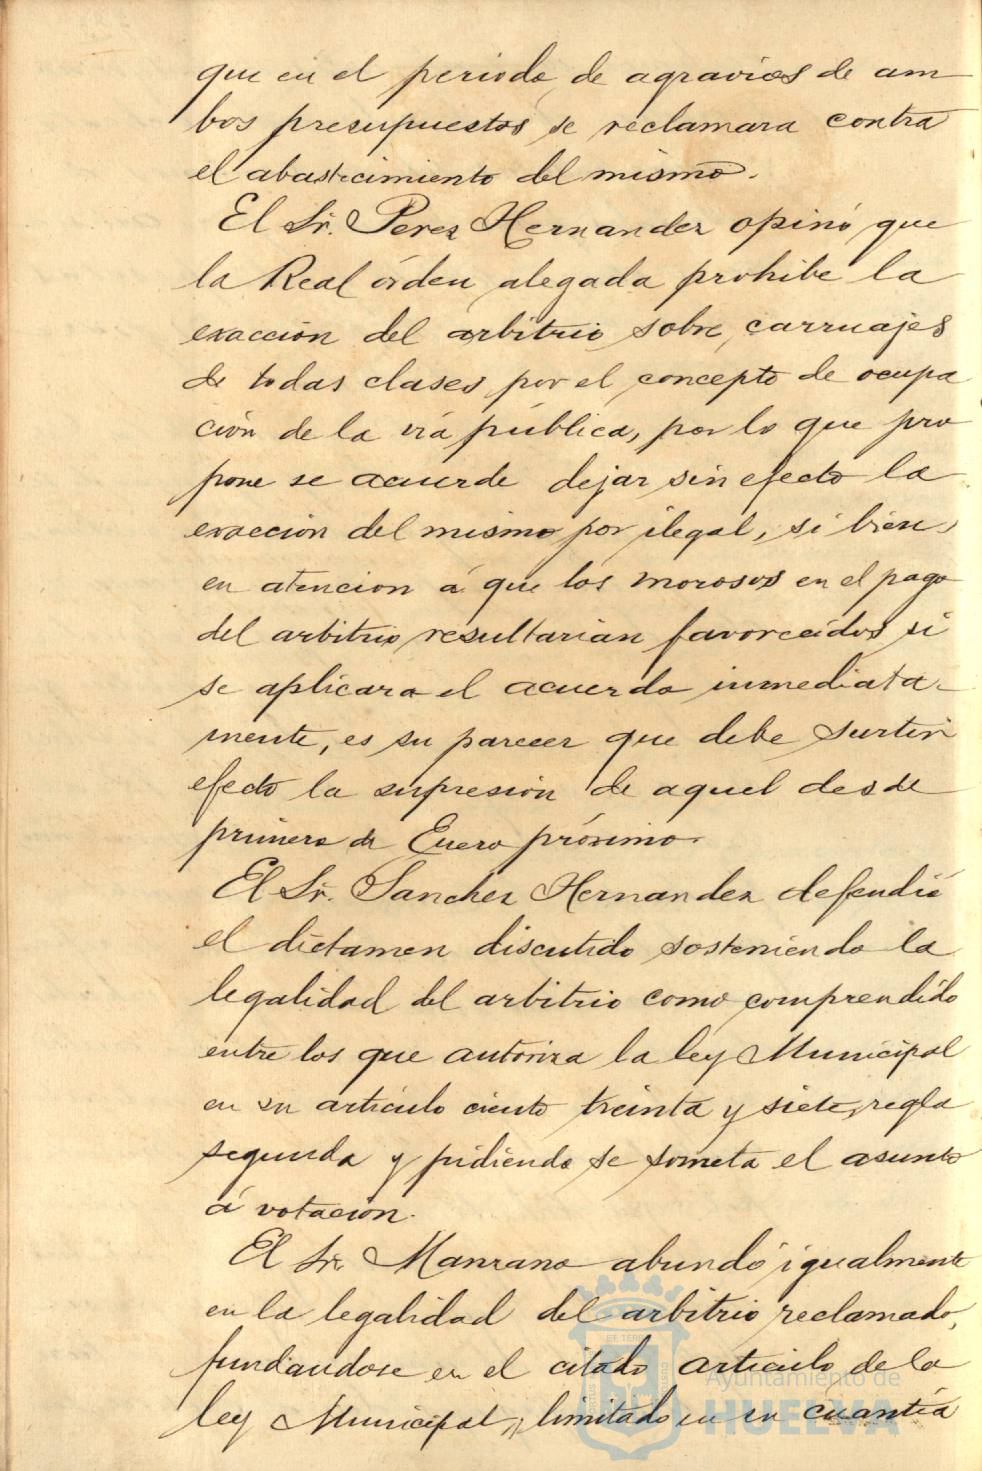 que en el periodo de agravios de am
bos presupuestos se reclamara contra
el abastecimiento del mismo.
El Sr. Perez Hernandez opinó que
la Real órden alegada prohibe la
exaccion del arbitrio sobre carruajes
de todas clases por el concepto de ocupa
ción de la via pública, por lo que pro
pone se acuerde dejar sin efecto la
exaccion del mismo por ilegal, si bien,
en atencion á que los morosos en el pago
del arbitrio resultarian favorecidos si
se aplicara el acuerdo inmediata-
mente, es su parecer que debe surtir
efecto la supresion de aquel desde
primero de Enero próximo.
El Sr. Sanchez Hernandez defendió
el dictamen discutido sosteniendo la
legalidad del arbitrio como comprendido
entre los que autoriza la ley Municipal
en su articulo ciento treinta y siete, regla
segunda y pidiendo se someta el asunto
á votación.
El Sr. Manzano abundó igualmente
en la legalidad del arbitrio reclamado,
fundandose en el citado articulo de la
ley Municipal, limitado en su cuantía
Ayuntamiento de
HUELVA